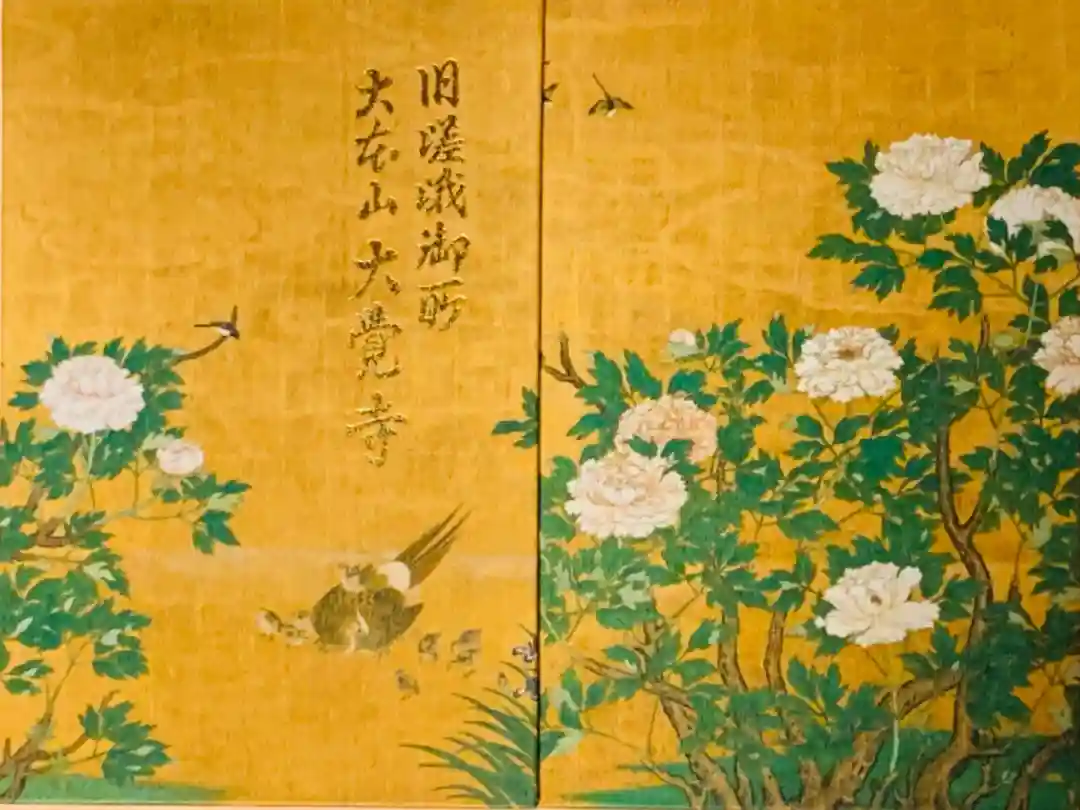 旧嵯峨御所
大本山大覺寺